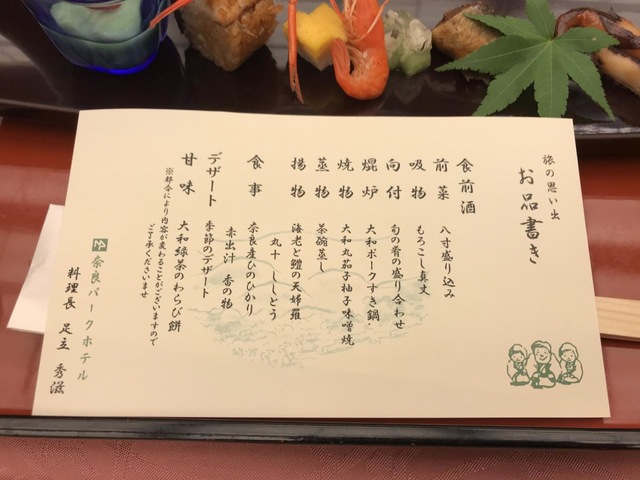 旅の思い出
お品書き
食前酒
前菜 八寸盛り込み
吸物 もろこし真丈
向付 旬の肴の盛り合わせ
焜炉 大和ポークすき鍋
焼物 大和丸茄子柚子味噌焼
蒸物 茶碗蒸し
揚物 海老と鱧の天婦羅
丸十 ししとう
食事 奈良産ひのひかり
赤出汁 香の物
デザート 季節のデザート
甘味 大和緑茶のわらび餅
※都合により内容が変わることがございますので
ご了承くださいませ
奈良パークホテル
料理長 足立 秀滋